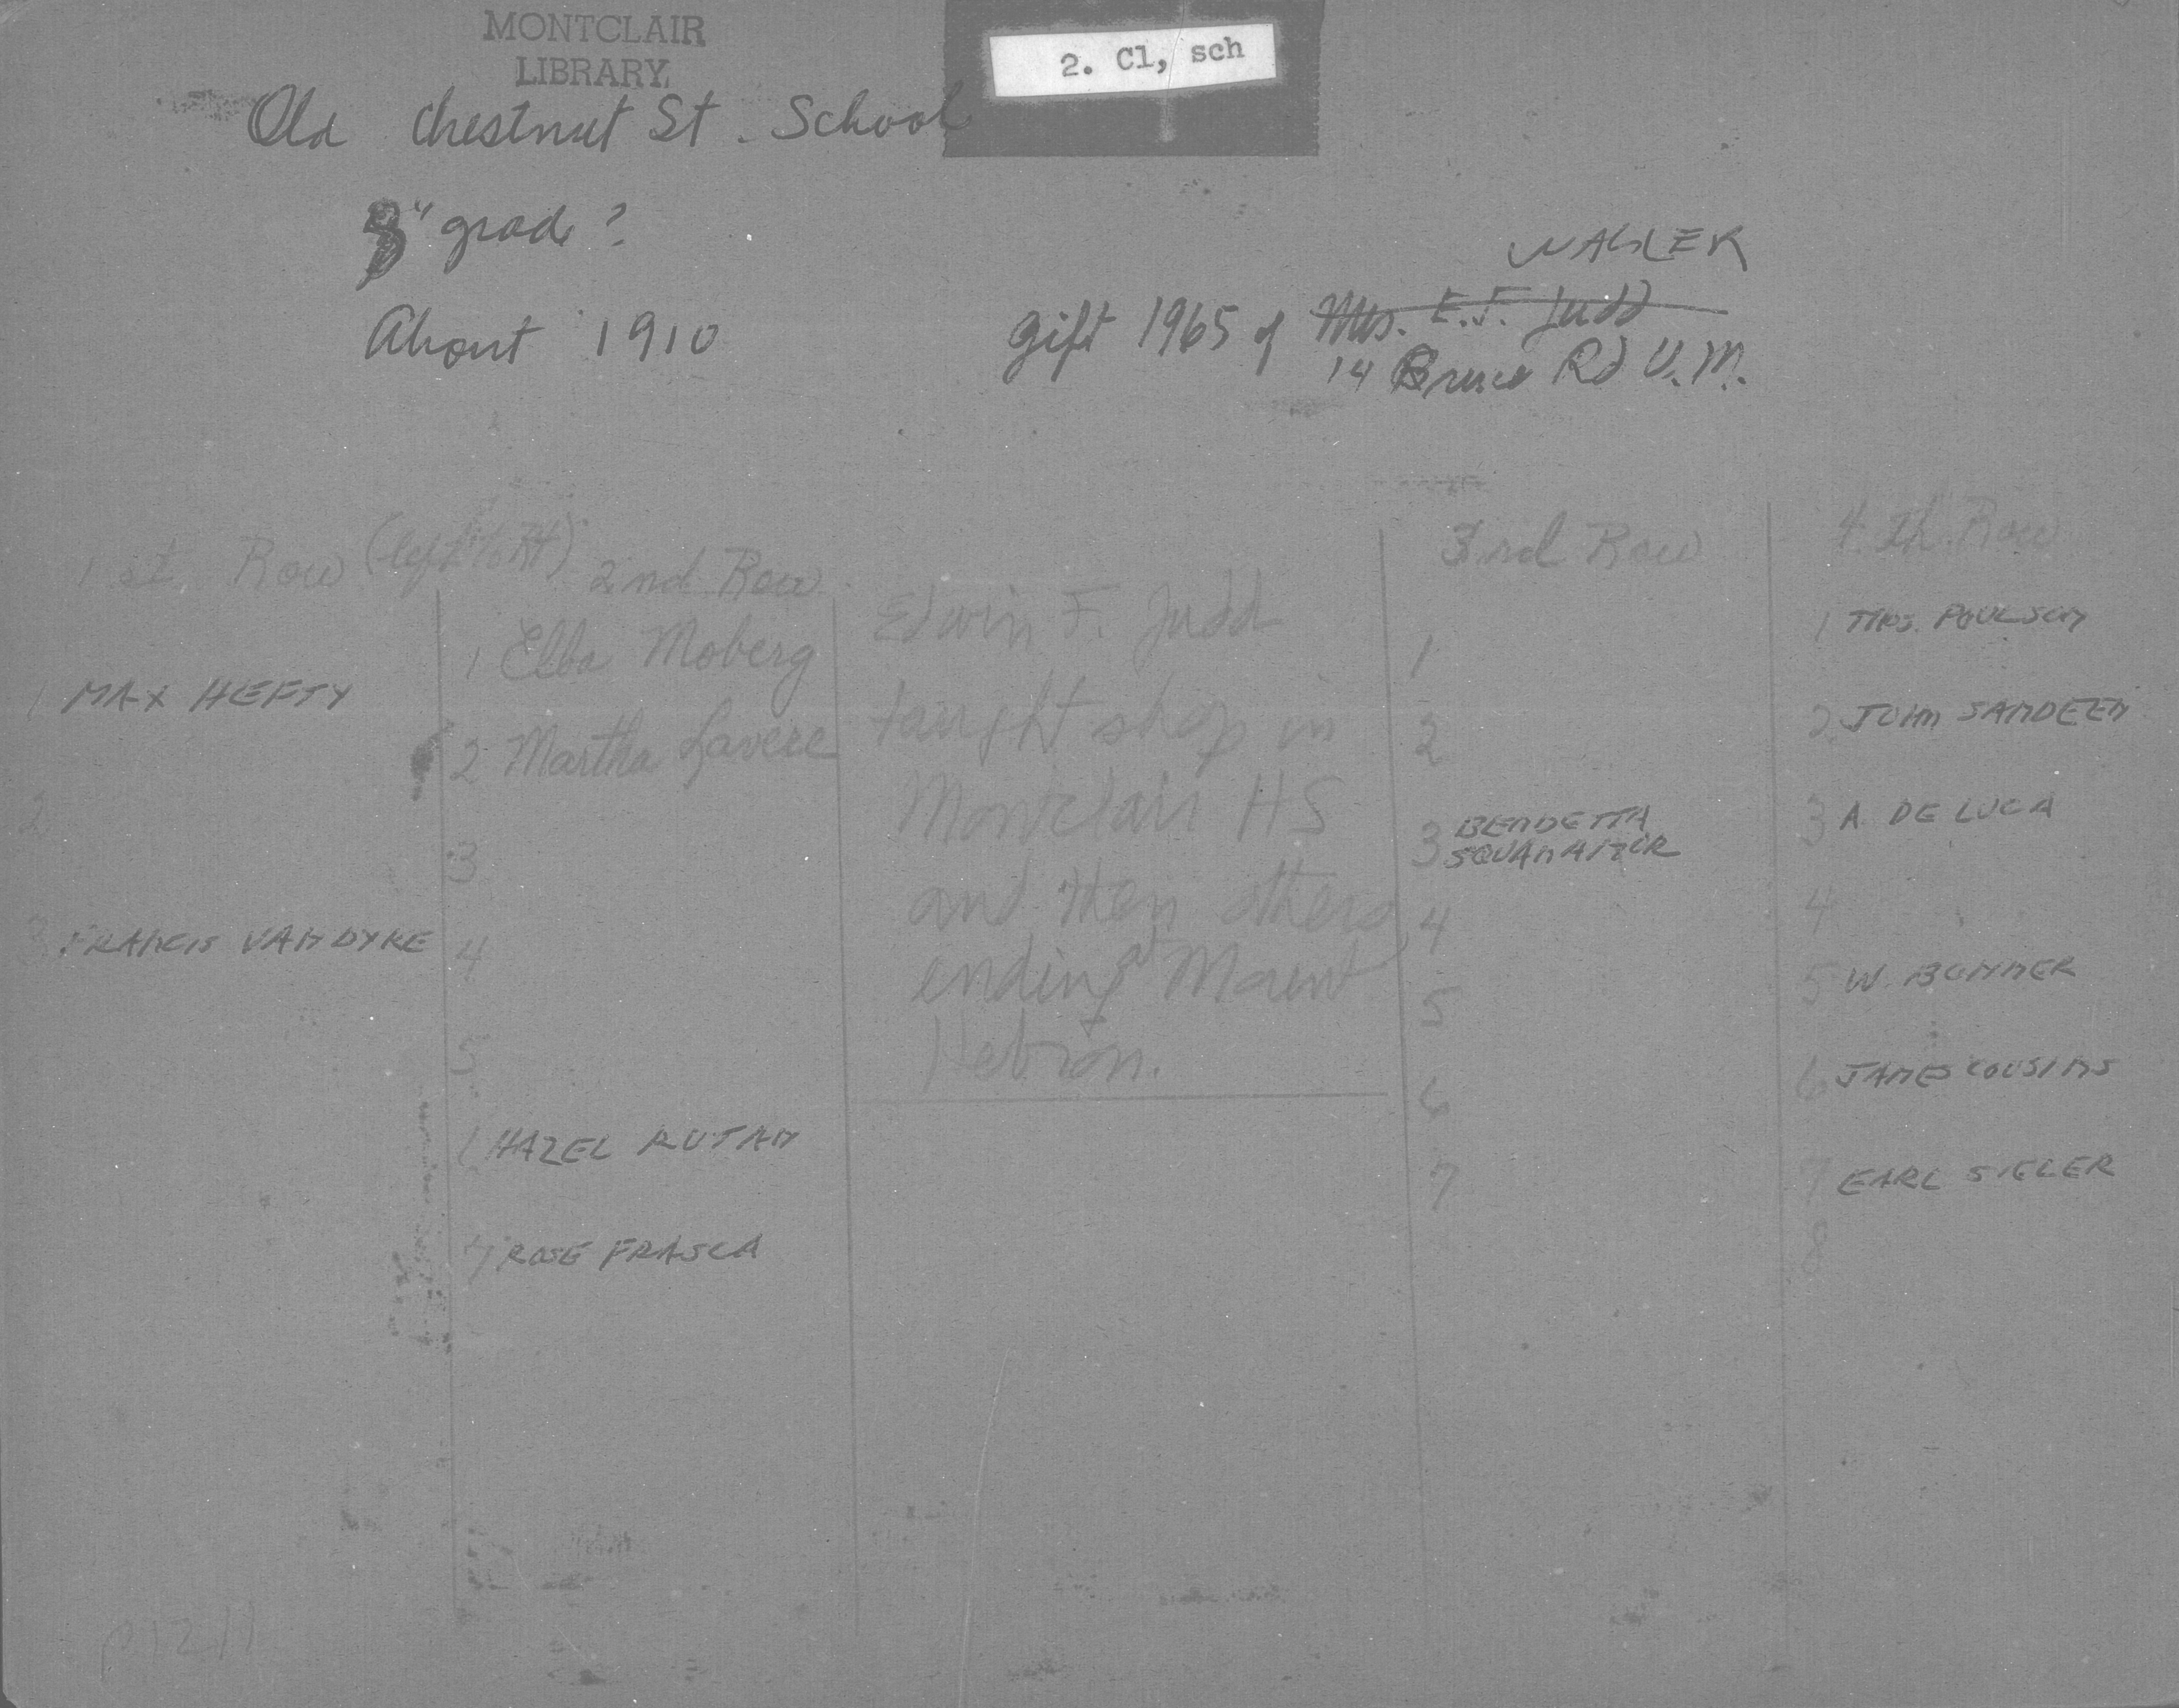 MONTCLAIR
LIBRARY
2. Cl, sch
Old Chestnut St. School
8" grade?
About 1910
gift 1965 of Mrs. E.F. Judd
14 Bruce Rd U.M.
1st Row (left to Rt)
1 MAX HEFTY
2
3 FRANCIS VAN DYKE
2nd Row
1 Elba Moberg
2 Martha Lavere
3
4
5
6 HAZEL RUTAN
7 ROSE FRASCA
Edwin F. Judd
taught shop in
Montclair HS
and then others
ending at Mount
Hebron.
3rd Row
1
2
3 BENDETTA
4
5
6
7
4th Row
1 MRS. POULSON
2 JOHN SANDEEN
3 A. DE LUCA
4
5 W. BOMMER
6 JAMES COUSINS
7 EARL SIELER
8